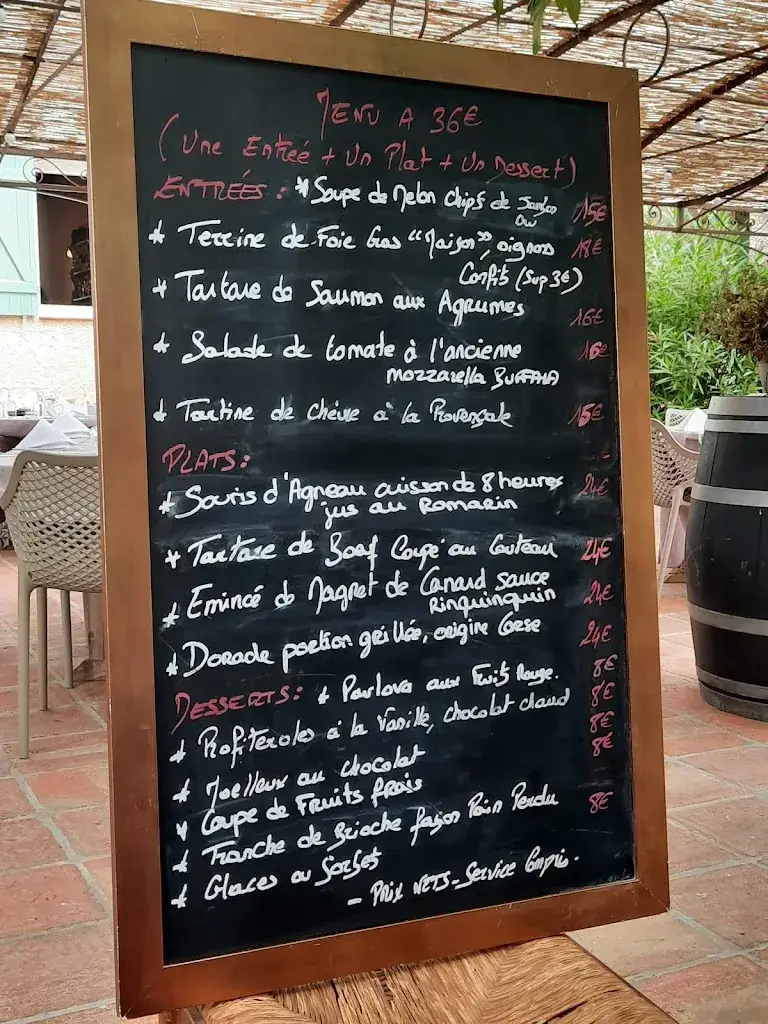 MENU A 36€
(Une Entrée + Un Plat + Un Dessert)
ENTRÉES : * Soupe de Melon Chips de 15€
* Terrine de Foie Gras "Maison", oignons 18€
Confits (Sup 3€)
* Tartare de Saumon aux Agrumes 16€
* Salade de tomate à l'ancienne 16€
mozzarella BUFFALA
* Tartine de chèvre à la Provençale 15€
PLATS :
* Souris d'Agneau cuisson de 8 heures 24€
jus au Romarin
* Tartare de Boeuf Coupé au Couteau 24€
* Emincé de Magret de Canard sauce 24€
Rinquinquin
* Dorade portion grillée, origine Corse 24€
DESSERTS : * Pavlova aux Fruits Rouge. 8€
* Profiteroles à la Vanille, chocolat chaud 8€
* Moelleux au chocolat 8€
* Coupe de Fruits frais 8€
* Tranche de Brioche façon Pain Perdu 8€
* Glaces ou Sorbets
- Prix NETS - Service Compris.